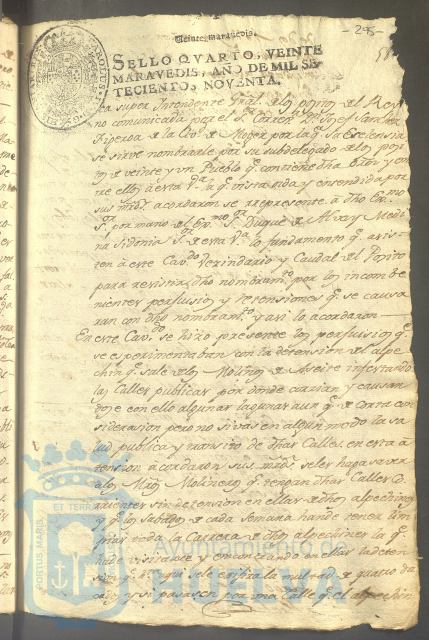 Veinte maravedis.
-295-
SELLO QVARTO, VEINTE
MARAVEDIS, AÑO DE MIL SE-
TECIENTO, NOVENTA.
super Intendente Gral. de los positos del Rey
no comunicada por el Sr. Correxr. Dn. Josef
Figeroa de la Ciud. de Moger por la q. Su Excelencia
se sirve nombrarle por su subdelegado de los posi
tos de veinte y un Pueblo q. contiene dha orn y en
tre ellos a esta Va. a q. vista oida y entendida por
sus mrds. acordaron se represente a dho Exmo
Sr. por mano del Exmo. Sr. Duque de Alva y Medi
na Sidonia Sr. de esta Va. los fundamentos q. asis
ten a este Cavdo. Vezindario y Caudal del Posito
para dho nombramto. por los incombe
nientes perjuisios y detensiones q. se causa
ran con dho nombramto. y asi lo acordaron
En este Cavdo. se hizo presente los perjuisios q.
se esperimentaban con la detension del alpe
chin q. sale de los Molinos de Aseite infestando
las Calles publicas por donde corrian y causan
dose con ello algunas lagunas aun q. de corta con
siderasion pero nosivas en algun modo a la sa
lud publica y transito de dhas Calles. en esta a
tension acordaron sus mrds. se les haga saver
a los Maes. Molineros q. tengan dhas Calles Co
rrientes sin detension en ellas de dhos alpechines
y q. los Sabados de cada Semana han de tener lim
pias toda la Carrera de dhos alpechines la q.
ha de visitarse y encontrando en ellas la deten
sion q. se les exsijira la multa de quatro du
cados y si pasasen por una Calle q. el alpechin
PORTUS MARIS ET TERRAE
Ayuntamiento de
HUELVA